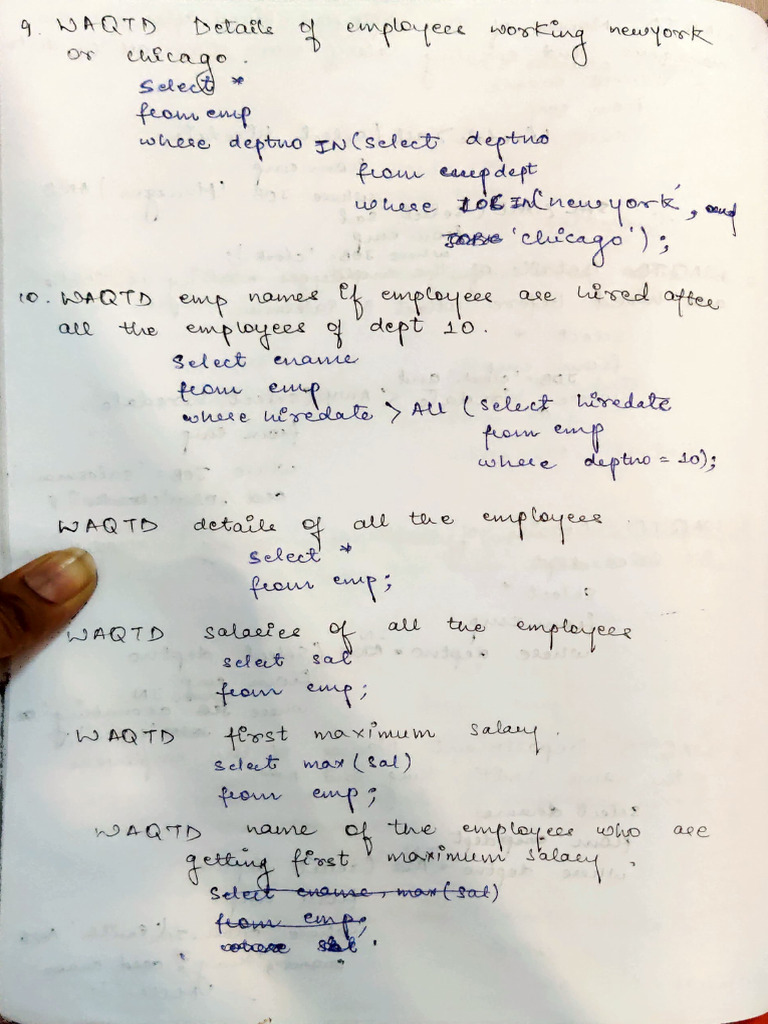 9. WAQTD Details of employees working newyork
or chicago.
Select *
from emp
where deptno IN (select deptno
from dept
where LOC IN('newyork',
'chicago');
10. WAQTD emp names if employees are hired after
all the employees of dept 10.
Select ename
from emp
where hiredate > ALL (select hiredate
from emp
where deptno = 10);
WAQTD details of all the employees
select *
from emp;
WAQTD salaries of all the employees
select sal
from emp;
WAQTD first maximum salary.
select max(sal)
from emp;
WAQTD name of the employees who are
getting first maximum salary.
Select ename, max(sal)
from emp;
where sal